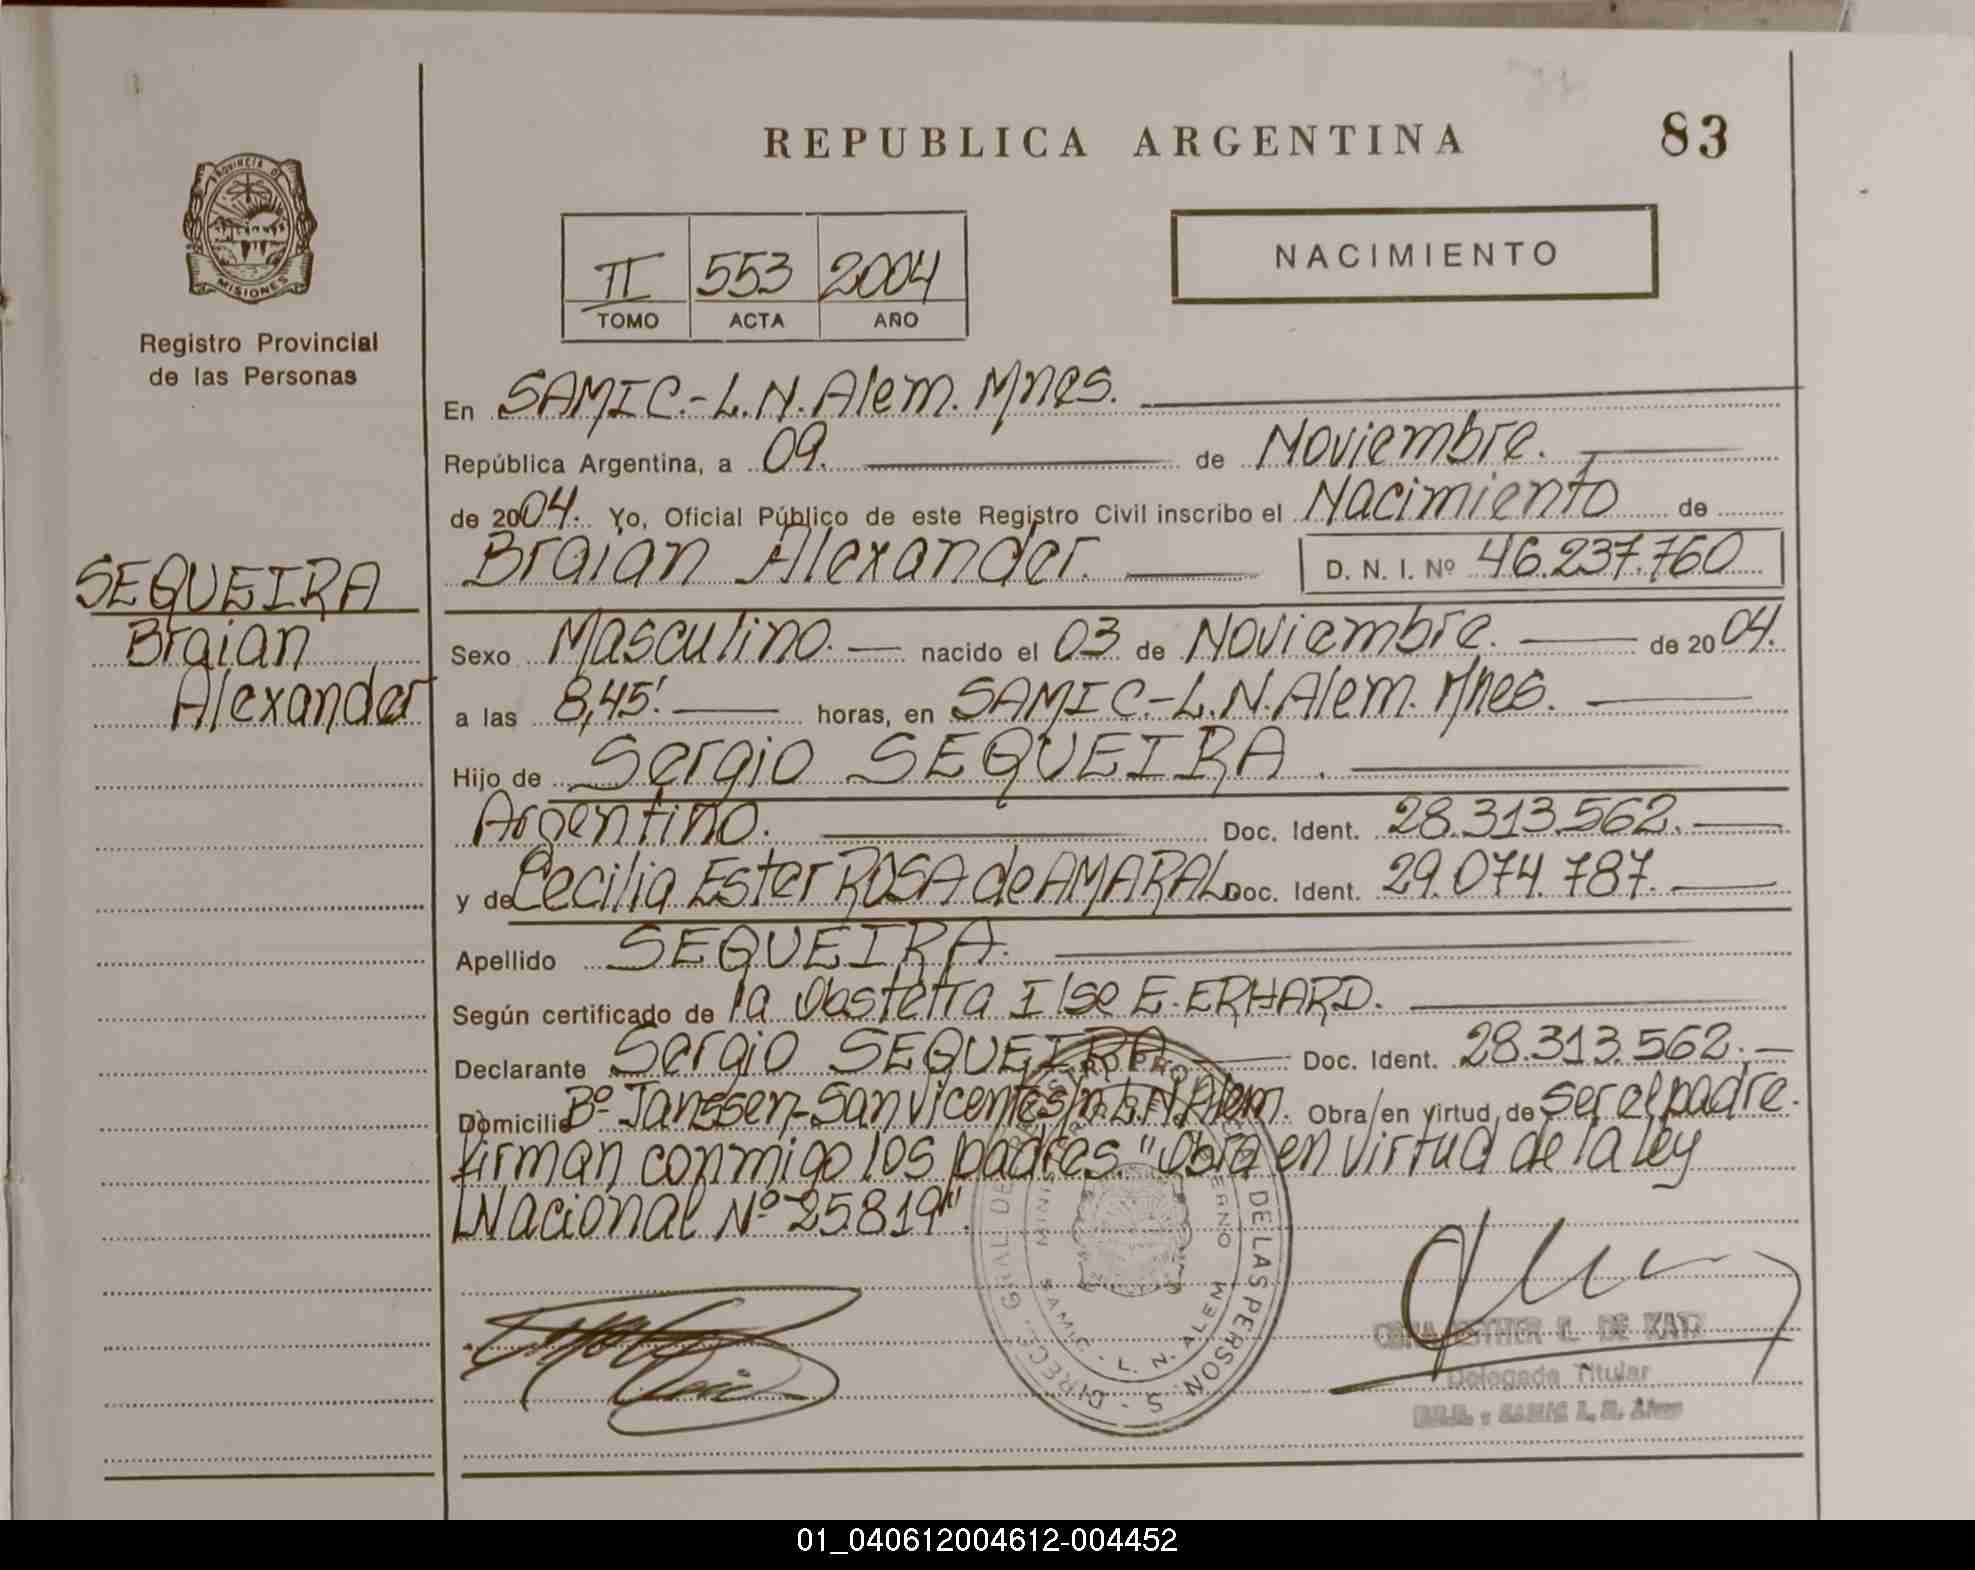 REPUBLICA ARGENTINA
83
PROVINCIA DE
MISIONES
Registro Provincial
de las Personas
II 553 2004
TOMO ACTA AÑO
NACIMIENTO
SEQUEIRA
Braian
Alexander
En SAMIC.-L.N.Alem. Mnes.
República Argentina, a 09. de Noviembre.
de 2004. Yo, Oficial Público de este Registro Civil inscribo el Nacimiento de
Braian Alexander. D. N. I. Nº 46.237.760
Sexo Masculino. nacido el 03 de Noviembre. de 2004.
a las 8,45'. horas, en SAMIC.-L.N.Alem. Mnes.
Hijo de Sergio SEQUEIRA.
Argentino. Doc. Ident. 28.313.562.
y de Cecilia Ester ROSA de AMARAL Doc. Ident. 29.074.787.
Apellido SEQUEIRA.
Según certificado de la Obstetra Ilse E. ERHARD.
Declarante Sergio SEQUEIRA Doc. Ident. 28.313.562.
Domicilio Bº Janssen-San Vicente s/n L.N.Alem. Obra en virtud de ser el padre.
Firman conmigo los padres. "Obra en virtud de la ley
Nacional Nº 25819".
DE LAS PERSONAS
SAMIC - L. N. ALEM
ESTHER DE KATZ
Delegada Titular
SAMIC L. N. Alem
01_040612004612-004452